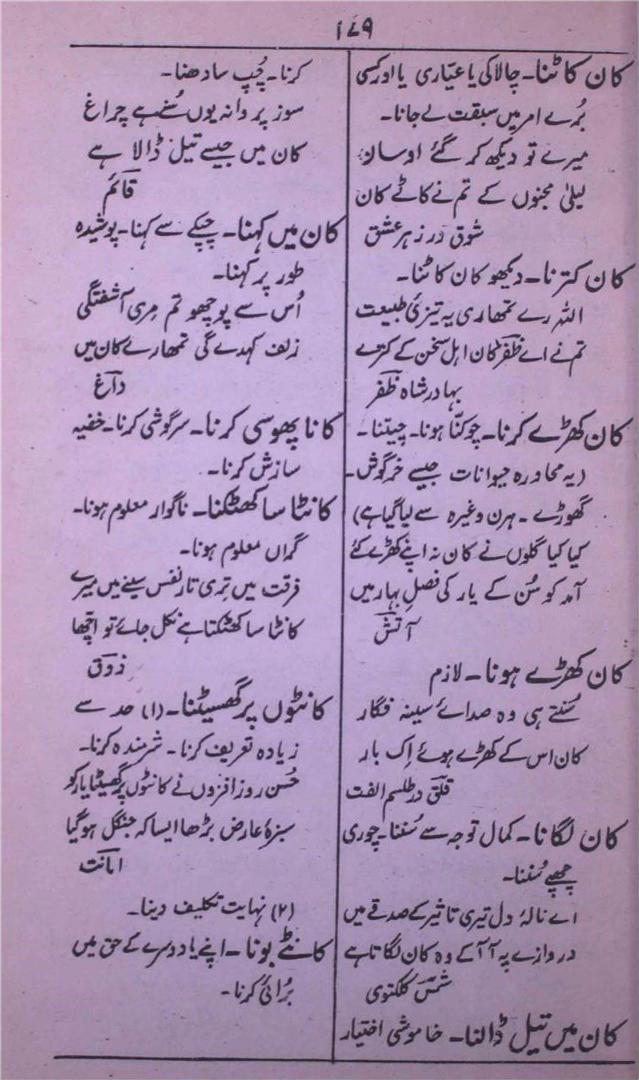 ۱۷۹
کان کاٹنا۔ چالاکی یا عیّاری یا اور کسی
بُرے امر میں سبقت لے جانا۔
میرے تو دیکھ کر گئے اوسان
لیلیٰ مجنوں کے تم نے کاٹے کان
شوق در زہر عشق
کان کترنا۔ دیکھو کان کاٹنا۔
اللہ رے تمھاری یہ تیزیٔ طبیعت
تم نے اے ظفرؔ کان اہل سخن کے کترے
بہادر شاہ ظفرؔ
کان کھڑے کرنا۔ چوکنّا ہونا۔ چیتنا۔
(یہ محاورہ حیوانات جیسے خرگوش۔
گھوڑے۔ ہرن وغیرہ سے لیا گیا ہے)
کیا کیا گلوں نے کان نہ اپنے کھڑے کئے
آمد کو سُن کے یار کی فصلِ بہار میں
آتشؔ
کان کھڑے ہونا۔ لازم
سُنتے ہی وہ صدائے سینہ فگار
کان اس کے کھڑے ہوئے اِک بار
قلقؔ در طلسم الفت
کان لگانا۔ کمال توجہ سے سُننا۔ چوری
چھپے سُننا۔
اے نالۂ دل تیری تاثیر کے صدقے میں
دروازے پہ آ آ کے وہ کان لگاتا ہے
شمسؔ کلکتوی
کان میں تیل ڈالنا۔ خاموشی اختیار
کرنا۔ چُپ سادھنا۔
سوز پروانہ یوں سُنے ہے چراغ
کان میں جیسے تیل ڈالا ہے
قائمؔ
کان میں کہنا۔ چپکے سے کہنا۔ پوشیدہ
طور پر کہنا۔
اُس سے پوچھو تم مِری آشفتگی
زلف کہدے گی تمھارے کان میں
داغؔ
کانا پھوسی کرنا۔ سرگوشی کرنا۔ خفیہ
سازش کرنا۔
کانٹا سا کھٹکنا۔ ناگوار معلوم ہونا۔
گراں معلوم ہونا۔
فرقت میں تری تارِ نفس سینے میں میرے
کانٹا سا کھٹکتا ہے نکل جائے تو اچھا
ذوقؔ
کانٹوں پر گھسیٹنا۔ (۱) حد سے
زیادہ تعریف کرنا۔ شرمندہ کرنا۔
حُسن روز افزوں نے کانٹوں پر گھسیٹا یار کو
سبزۂ عارض بڑھا ایسا کہ جنگل ہو گیا
امانتؔ
(۲) نہایت تکلیف دینا۔
کانٹے بونا۔ اپنے یا دوسرے کے حق میں
بُرائی کرنا۔